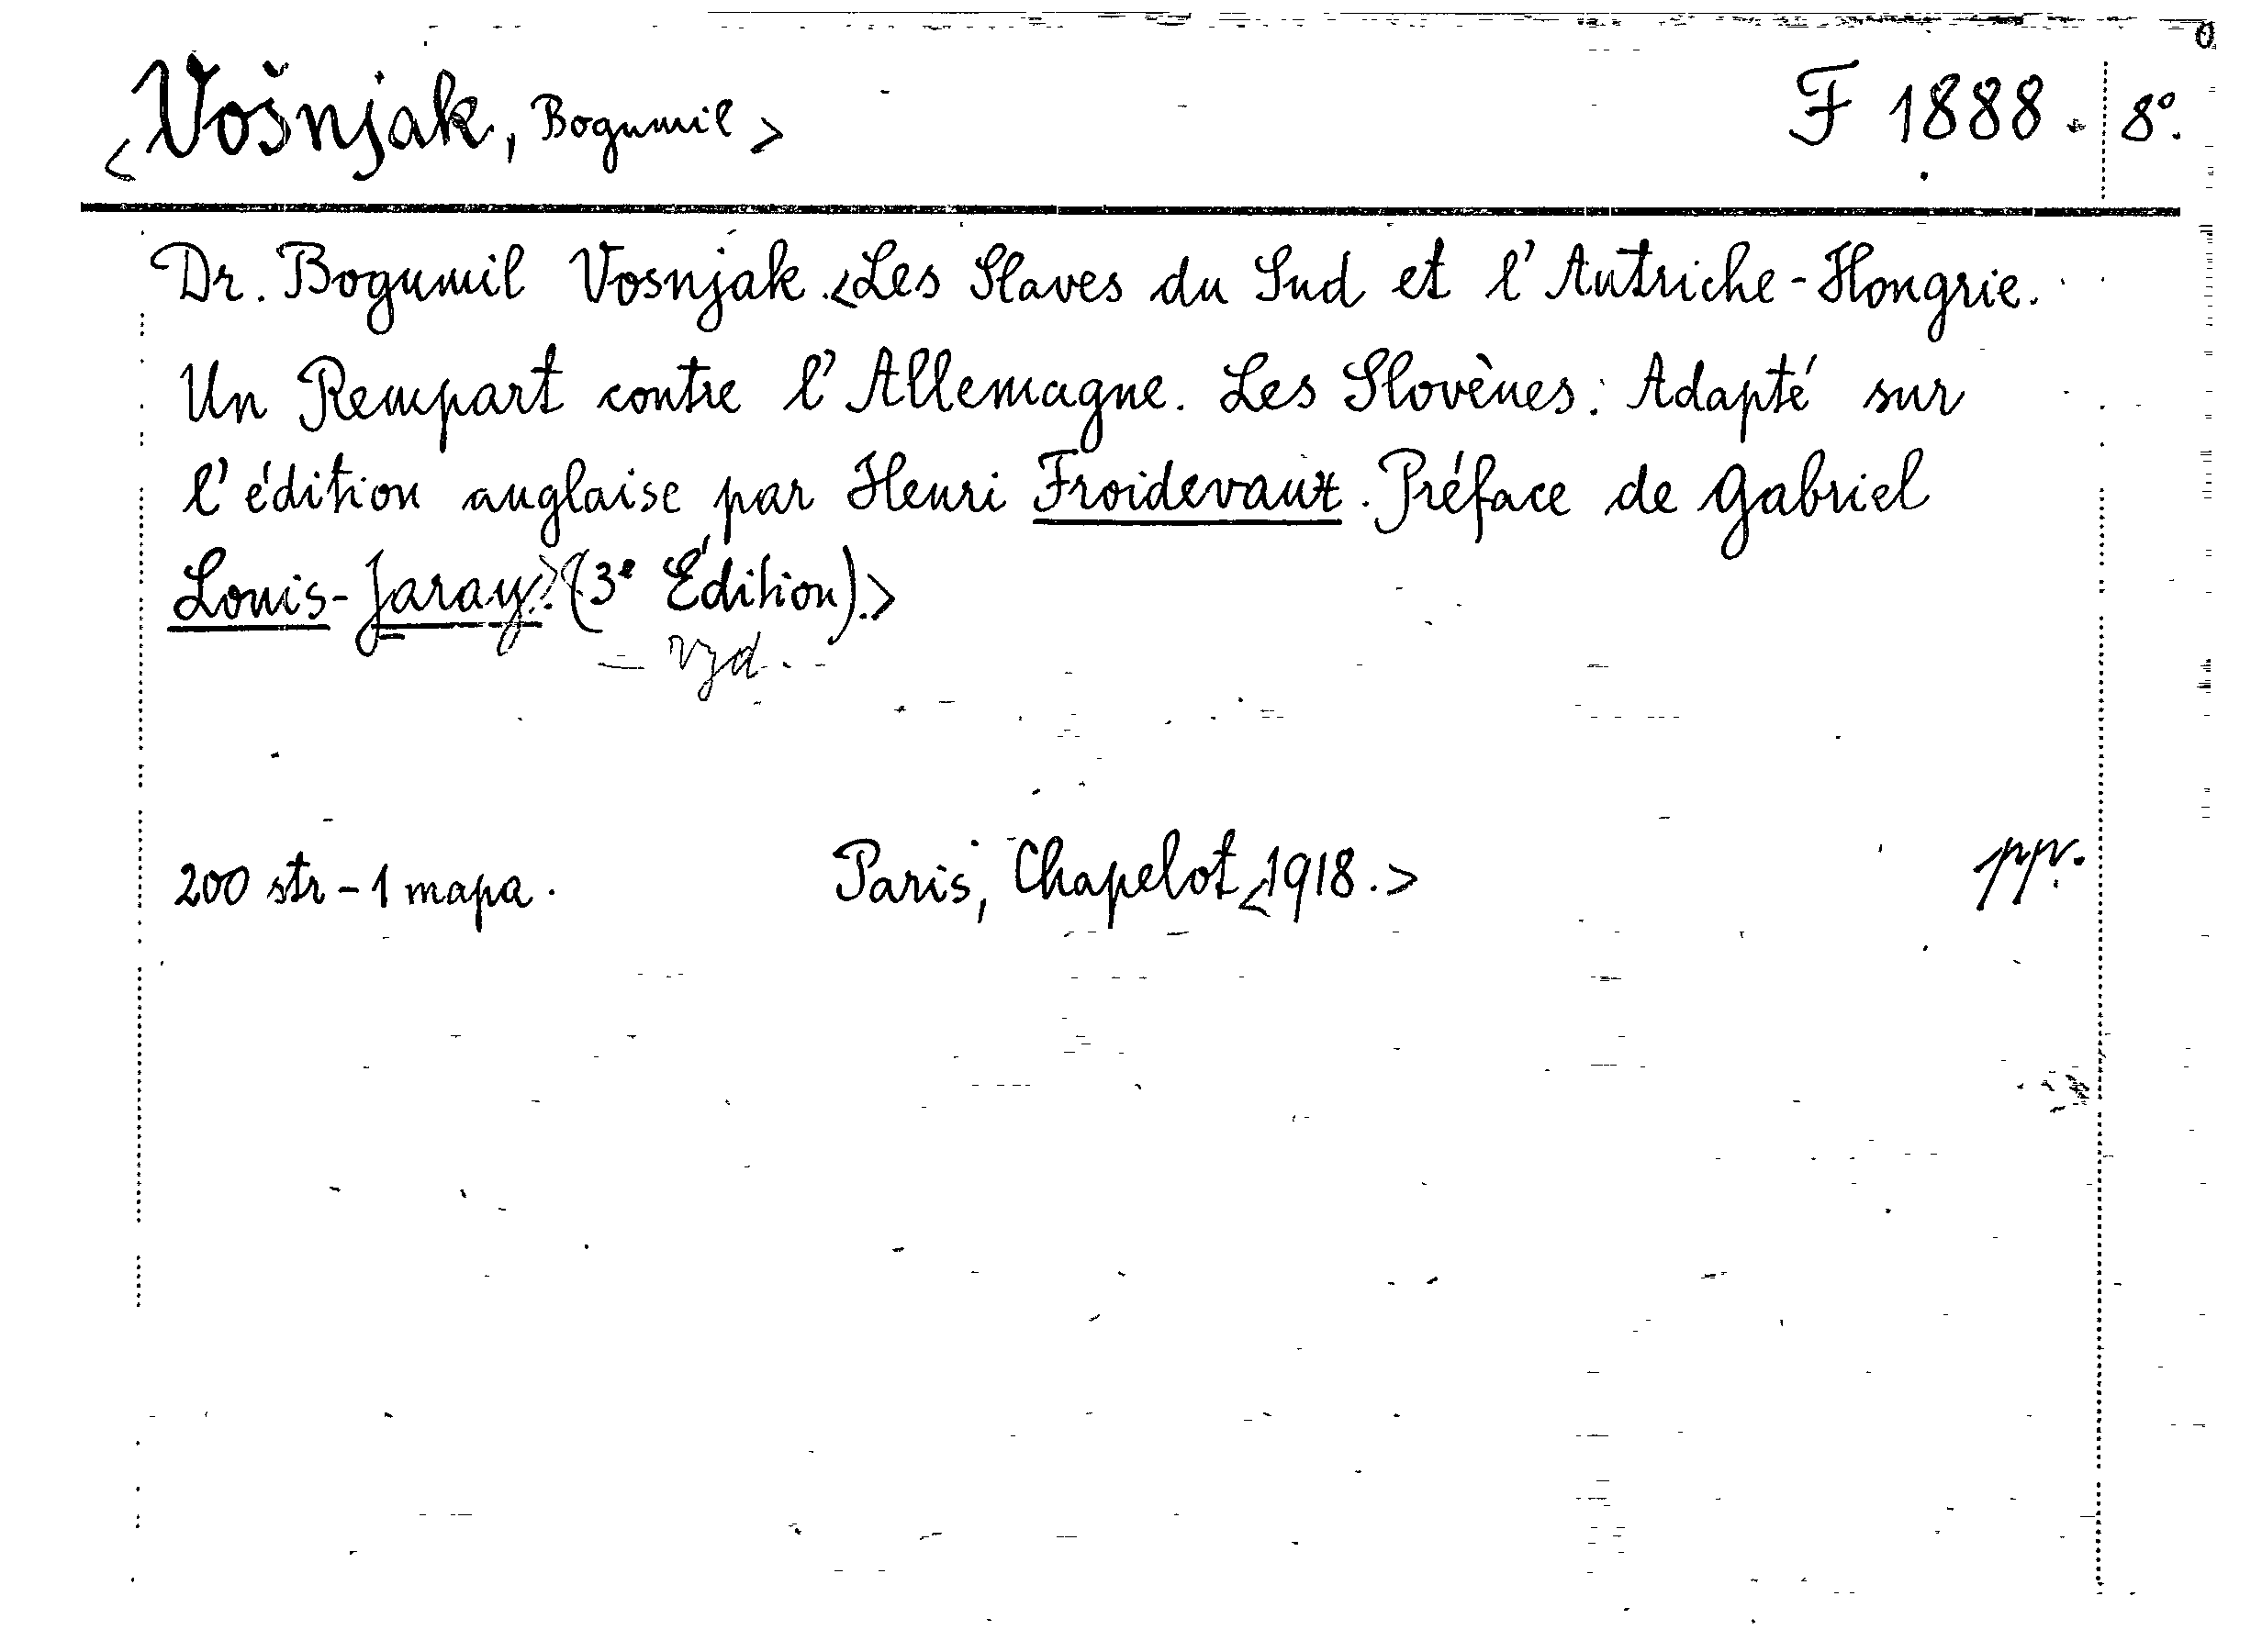 <Vošnjak, Bogumil> F 1888. 8°.
Dr. Bogumil Vosnjak.<Les Slaves du Sud et l'Autriche-Hongrie.
Un Rempart contre l'Allemagne. Les Slovènes: Adapté sur
l'édition anglaise par Henri Froidevaux. Préface de Gabriel
Louis-Jaray.>(3e Édition).>
— vyd.
200 str - 1 mapa. Paris, Chapelot <1918.>